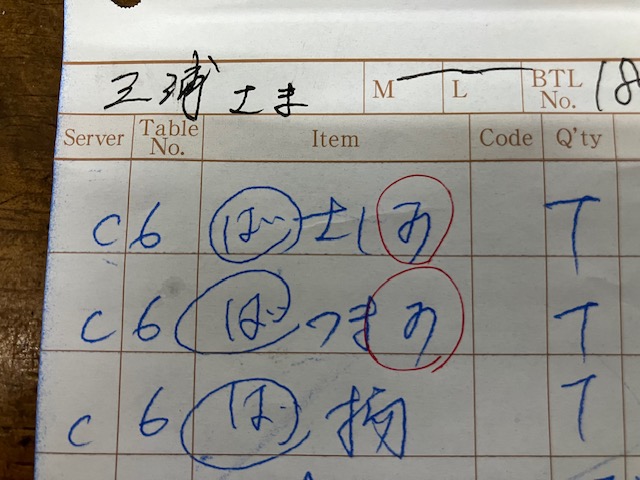 三浦さま M L BTL No. 18
Server Table No. Item Code Q'ty
C 6 ば さし み T
C 6 ば つま み T
C 6 ば T